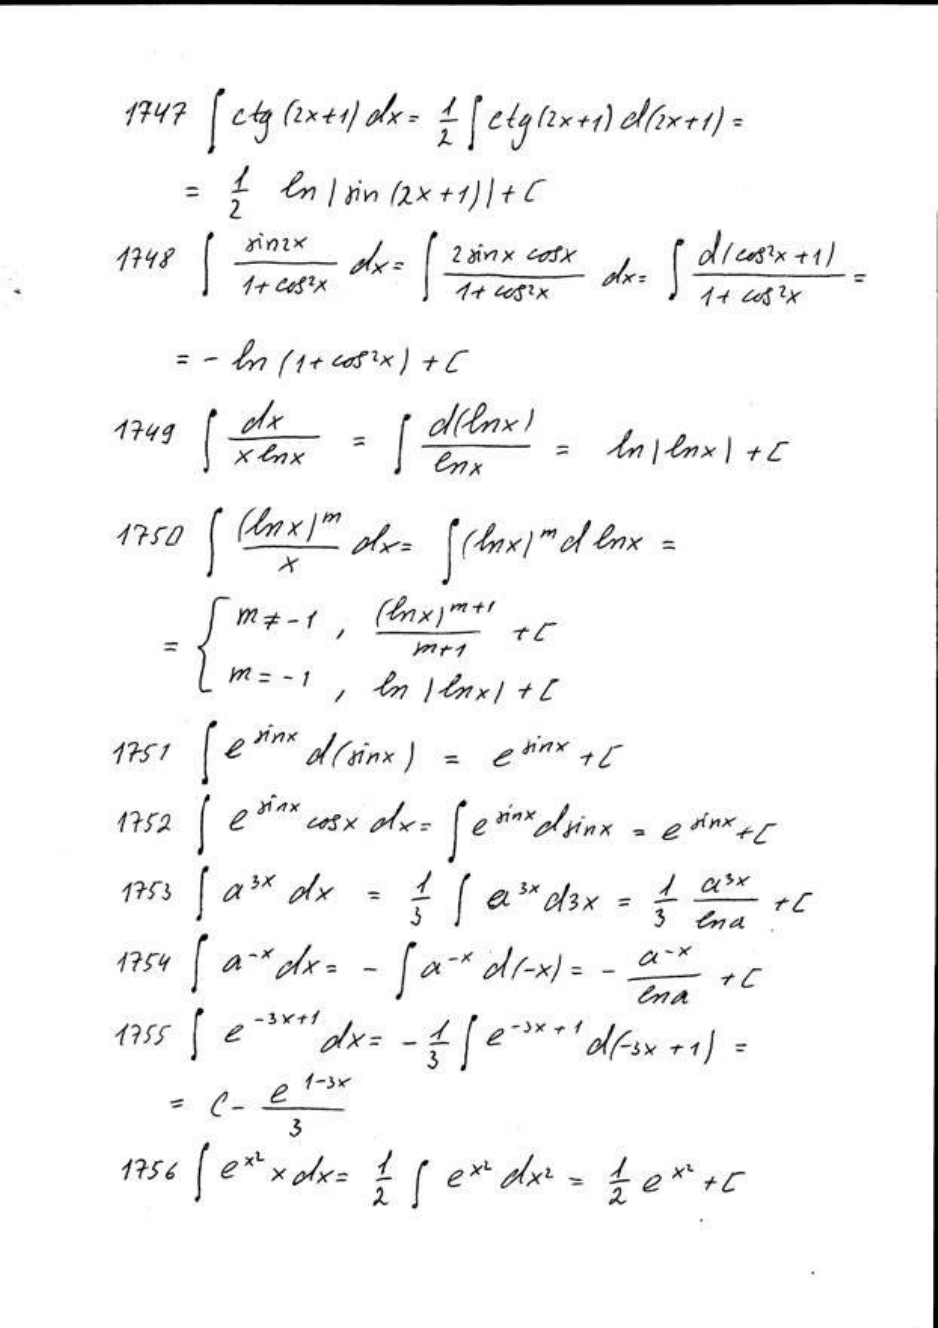 1747 ∫ ctg (2x+1) dx = 1/2 ∫ ctg (2x+1) d(2x+1) =
= 1/2 ln |sin (2x+1)| + C
1748 ∫ sin2x/(1+cos²x) dx = ∫ 2 sinx cosx/(1+cos²x) dx = ∫ d(cos²x+1)/(1+cos²x) =
= - ln (1+cos²x) + C
1749 ∫ dx/(x lnx) = ∫ d(lnx)/lnx = ln|lnx| + C
1750 ∫ (lnx)^m/x dx = ∫ (lnx)^m d lnx =
= { m ≠ -1 , (lnx)^(m+1)/(m+1) + C
m = -1 , ln |lnx| + C
1751 ∫ e^(sinx) d(sinx) = e^(sinx) + C
1752 ∫ e^(sinx) cosx dx = ∫ e^(sinx) dsinx = e^(sinx) + C
1753 ∫ a^(3x) dx = 1/3 ∫ a^(3x) d3x = 1/3 a^(3x)/lna + C
1754 ∫ a^(-x) dx = - ∫ a^(-x) d(-x) = - a^(-x)/lna + C
1755 ∫ e^(-3x+1) dx = - 1/3 ∫ e^(-3x+1) d(-3x+1) =
= C - e^(1-3x)/3
1756 ∫ e^(x²) x dx = 1/2 ∫ e^(x²) dx² = 1/2 e^(x²) + C